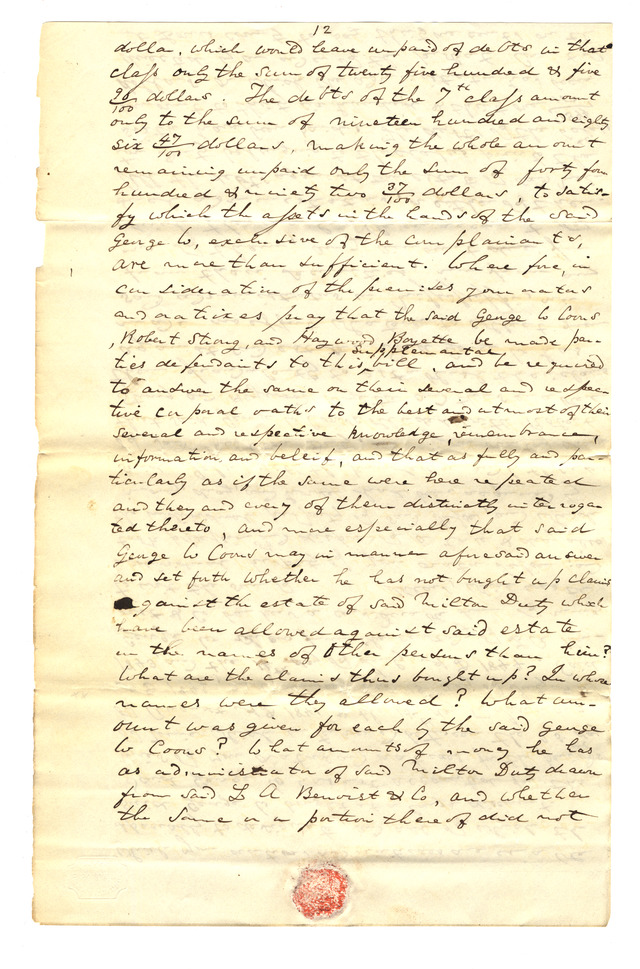 12
dolla, which would leave unpaid of debts in that
class only the sum of twenty five hundred & five
90/100 dollars. The debts of the 7th class amount
only to the sum of nineteen hundred and eighty
six 47/100 dollars, making the whole amount
remaining unpaid only the sum of forty four
hundred & ninety two 37/100 dollars, to satis-
fy which the assets in the hands of the said
George W, exclusive of the complainants,
are more than sufficient. Wherefore, in
consideration of the premises your orators
and oratrixes pray that the said George W Coons
, Robert Strong, and Haywood, Boyette be made par-
supplemental
ties defendants to this bill, and be required
to answer the same on their several and respec-
tive corporal oaths to the best and utmost of their
several and respective knowledge, remembrance,
information and beleif, and that as fully and par-
ticularly as if the same were here repeated
and they and every of them distinctly interroga-
ted thereto, and more especially that said
George W Coons may in manner aforesaid answer
and set forth whether he has not bought up claims
against the estate of said Milton Duty which
have been allowed against said estate
in the names of other persons than him?
What are the claims thus bought up? In whose
names were they allowed? What am-
ount was given for each by the said George
W Coons? What amounts of money he has
as administrator of said Milton Duty drawn
from said L A Benoist & Co, and whether
the same or a portion thereof did not